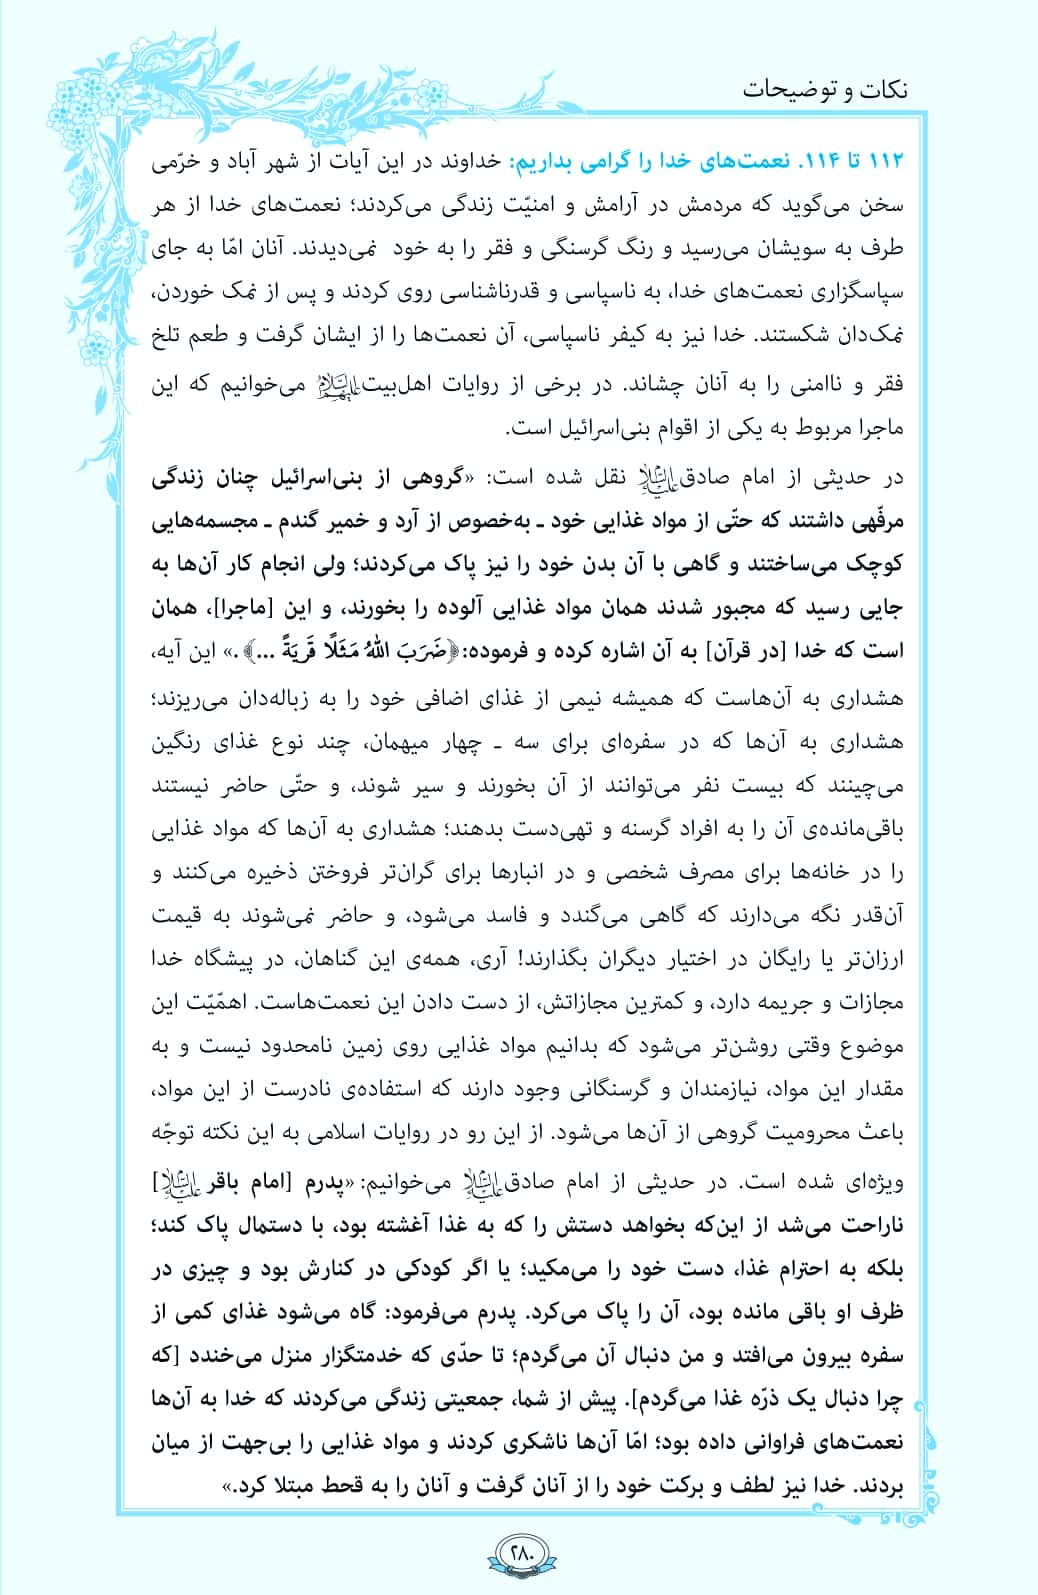 نکات و توضیحات
۱۱۲ تا ۱۱۴. نعمت‌های خدا را گرامی بداریم: خداوند در این آیات از شهر آباد و خرّمی
سخن می‌گوید که مردمش در آرامش و امنیّت زندگی می‌کردند؛ نعمت‌های خدا از هر
طرف به سویشان می‌رسید و رنگ گرسنگی و فقر را به خود نمی‌دیدند. آنان امّا به جای
سپاسگزاری نعمت‌های خدا، به ناسپاسی و قدرناشناسی روی کردند و پس از نمک خوردن،
نمک‌دان شکستند. خدا نیز به کیفر ناسپاسی، آن نعمت‌ها را از ایشان گرفت و طعم تلخ
فقر و ناامنی را به آنان چشاند. در برخی از روایات اهل‌بیت علیهم‌السلام می‌خوانیم که این
ماجرا مربوط به یکی از اقوام بنی‌اسرائیل است.
در حدیثی از امام صادق علیه‌السلام نقل شده است: «گروهی از بنی‌اسرائیل چنان زندگی
مرفّهی داشتند که حتّی از مواد غذایی خود ـ به‌خصوص از آرد و خمیر گندم ـ مجسمه‌هایی
کوچک می‌ساختند و گاهی با آن بدن خود را نیز پاک می‌کردند؛ ولی انجام کار آن‌ها به
جایی رسید که مجبور شدند همان مواد غذایی آلوده را بخورند، و این [ماجرا]، همان
است که خدا [در قرآن] به آن اشاره کرده و فرموده: ﴿ضَرَبَ اللهُ مَثَلًا قَریَةً ...﴾.» این آیه،
هشداری به آن‌هاست که همیشه نیمی از غذای اضافی خود را به زباله‌دان می‌ریزند؛
هشداری به آن‌ها که در سفره‌ای برای سه ـ چهار میهمان، چند نوع غذای رنگین
می‌چینند که بیست نفر می‌توانند از آن بخورند و سیر شوند، و حتّی حاضر نیستند
باقی‌مانده‌ی آن را به افراد گرسنه و تهی‌دست بدهند؛ هشداری به آن‌ها که مواد غذایی
را در خانه‌ها برای مصرف شخصی و در انبارها برای گران‌تر فروختن ذخیره می‌کنند و
آن‌قدر نگه می‌دارند که گاهی می‌گندد و فاسد می‌شود، و حاضر نمی‌شوند به قیمت
ارزان‌تر یا رایگان در اختیار دیگران بگذارند! آری، همه‌ی این گناهان، در پیشگاه خدا
مجازات و جریمه دارد، و کمترین مجازاتش، از دست دادن این نعمت‌هاست. اهمّیّت این
موضوع وقتی روشن‌تر می‌شود که بدانیم مواد غذایی روی زمین نامحدود نیست و به
مقدار این مواد، نیازمندان و گرسنگانی وجود دارند که استفاده‌ی نادرست از این مواد،
باعث محرومیت گروهی از آن‌ها می‌شود. از این رو در روایات اسلامی به این نکته توجّه
ویژه‌ای شده است. در حدیثی از امام صادق علیه‌السلام می‌خوانیم: «پدرم [امام باقر علیه‌السلام]
ناراحت می‌شد از این‌که بخواهد دستش را که به غذا آغشته بود، با دستمال پاک کند؛
بلکه به احترام غذا، دست خود را می‌مکید؛ یا اگر کودکی در کنارش بود و چیزی در
ظرف او باقی مانده بود، آن را پاک می‌کرد. پدرم می‌فرمود: گاه می‌شود غذای کمی از
سفره بیرون می‌افتد و من دنبال آن می‌گردم؛ تا حدّی که خدمتگزار منزل می‌خندد [که
چرا دنبال یک ذرّه غذا می‌گردم]. پیش از شما، جمعیتی زندگی می‌کردند که خدا به آن‌ها
نعمت‌های فراوانی داده بود؛ امّا آن‌ها ناشکری کردند و مواد غذایی را بی‌جهت از میان
بردند. خدا نیز لطف و برکت خود را از آنان گرفت و آنان را به قحط مبتلا کرد.»
۲۸۰